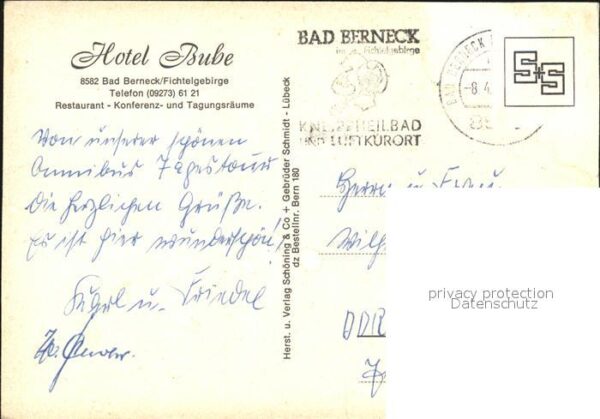 Hotel Bube
8582 Bad Berneck/Fichtelgebirge
Telefon (09273) 61 21
Restaurant - Konferenz- und Tagungsräume
Von unserer schönen
Omnibus Tagestour
die herzlichen Grüße.
Es ist hier wunderschön!
u. Friedel
Herst. u. Verlag Schöning & Co + Gebrüder Schmidt - Lübeck
dz Bestellnr. Bern 180
BAD BERNECK
im Fichtelgebirge
KNEIPPHEILBAD
UND LUFTKURORT
BAD BERNECK
-8.4
S+S
Herrn u. Frau
Wilh
DDR
privacy protection
Datenschutz